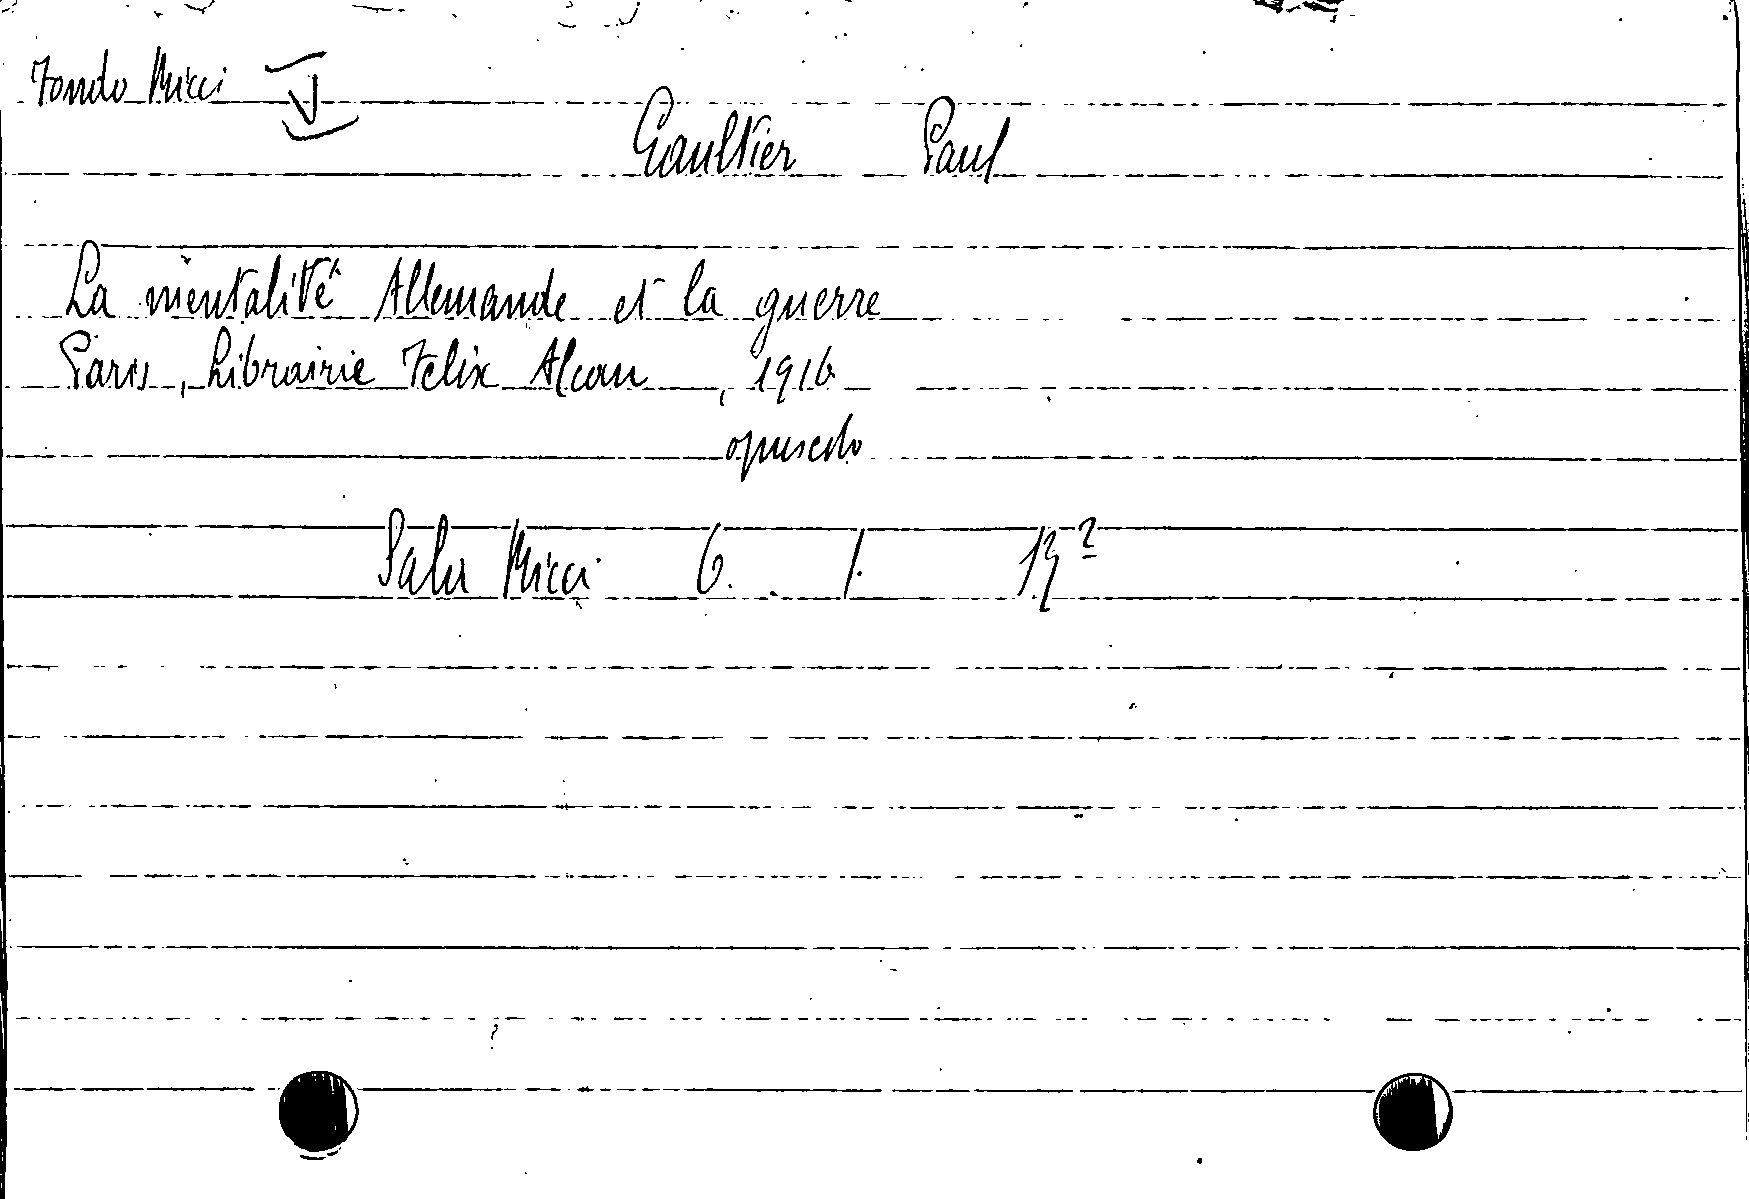 Fondo Micci
Gaultier Paul
La mentalité Allemande et la guerre
Paris, Librairie Felix Alcan, 1916
opuscolo
Sala Micci 6. 1. 19²